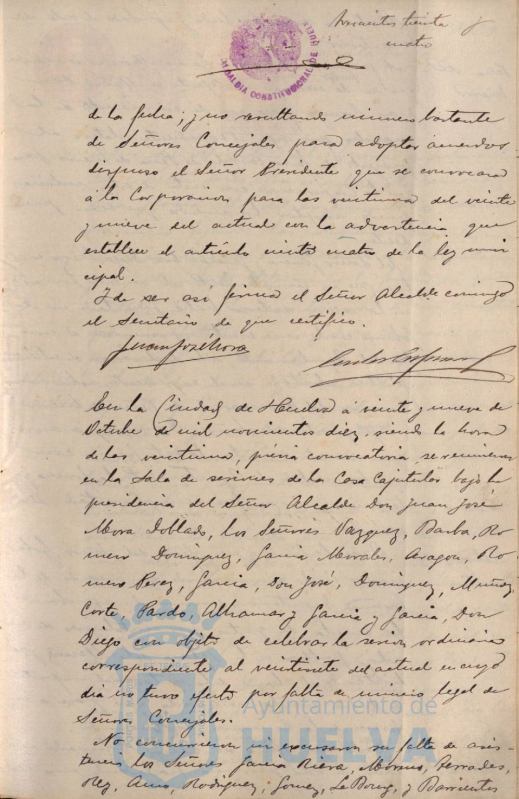 doscientos treinta y
cuatro
ALCALDIA CONSTITUCIONAL DE HUELVA
de la fecha; y no resultando número bastante
de Señores Concejales para adoptar acuerdos
dispuso el Señor Presidente que se convocara
á la Corporacion para las veintiuna del veinte
y nueve del actual con la advertencia que
establece el artículo ciento cuatro de la ley muni
cipal.
Y de ser así firma el Señor Alcalde conmigo
el Secretario de que certifico.
Juan José Mora
En la Ciudad de Huelva á veinte y nueve de
Octubre de mil novecientos diez, siendo la hora
de las veintiuna, prévia convocatoria, se reunieron
en la Sala de sesiones de la Casa Capitular bajo la
presidencia del Señor Alcalde Don Juan José
Mora Doblado, los Señores Vazquez, Barba, Ro
mero Dominguez, Garcia Morales, Aragon, Ro
mero Perez, Garcia, Don José, Dominguez, Muñoz,
Corte, Pardo, Alhamar y Garcia y Garcia, Don
Diego con objeto de celebrar la sesion ordinaria
correspondiente al veintisiete del actual en cuyo
dia no tuvo efecto por falta de número legal de
Señores Concejales.
No concurrieron ni excusaron su falta de asis
tencia los Señores Garcia Riera, Moreno, Terrades,
Rey, Rodriguez, Gomez, Le Bourg, y Barrientos
Ayuntamiento de
HUELVA